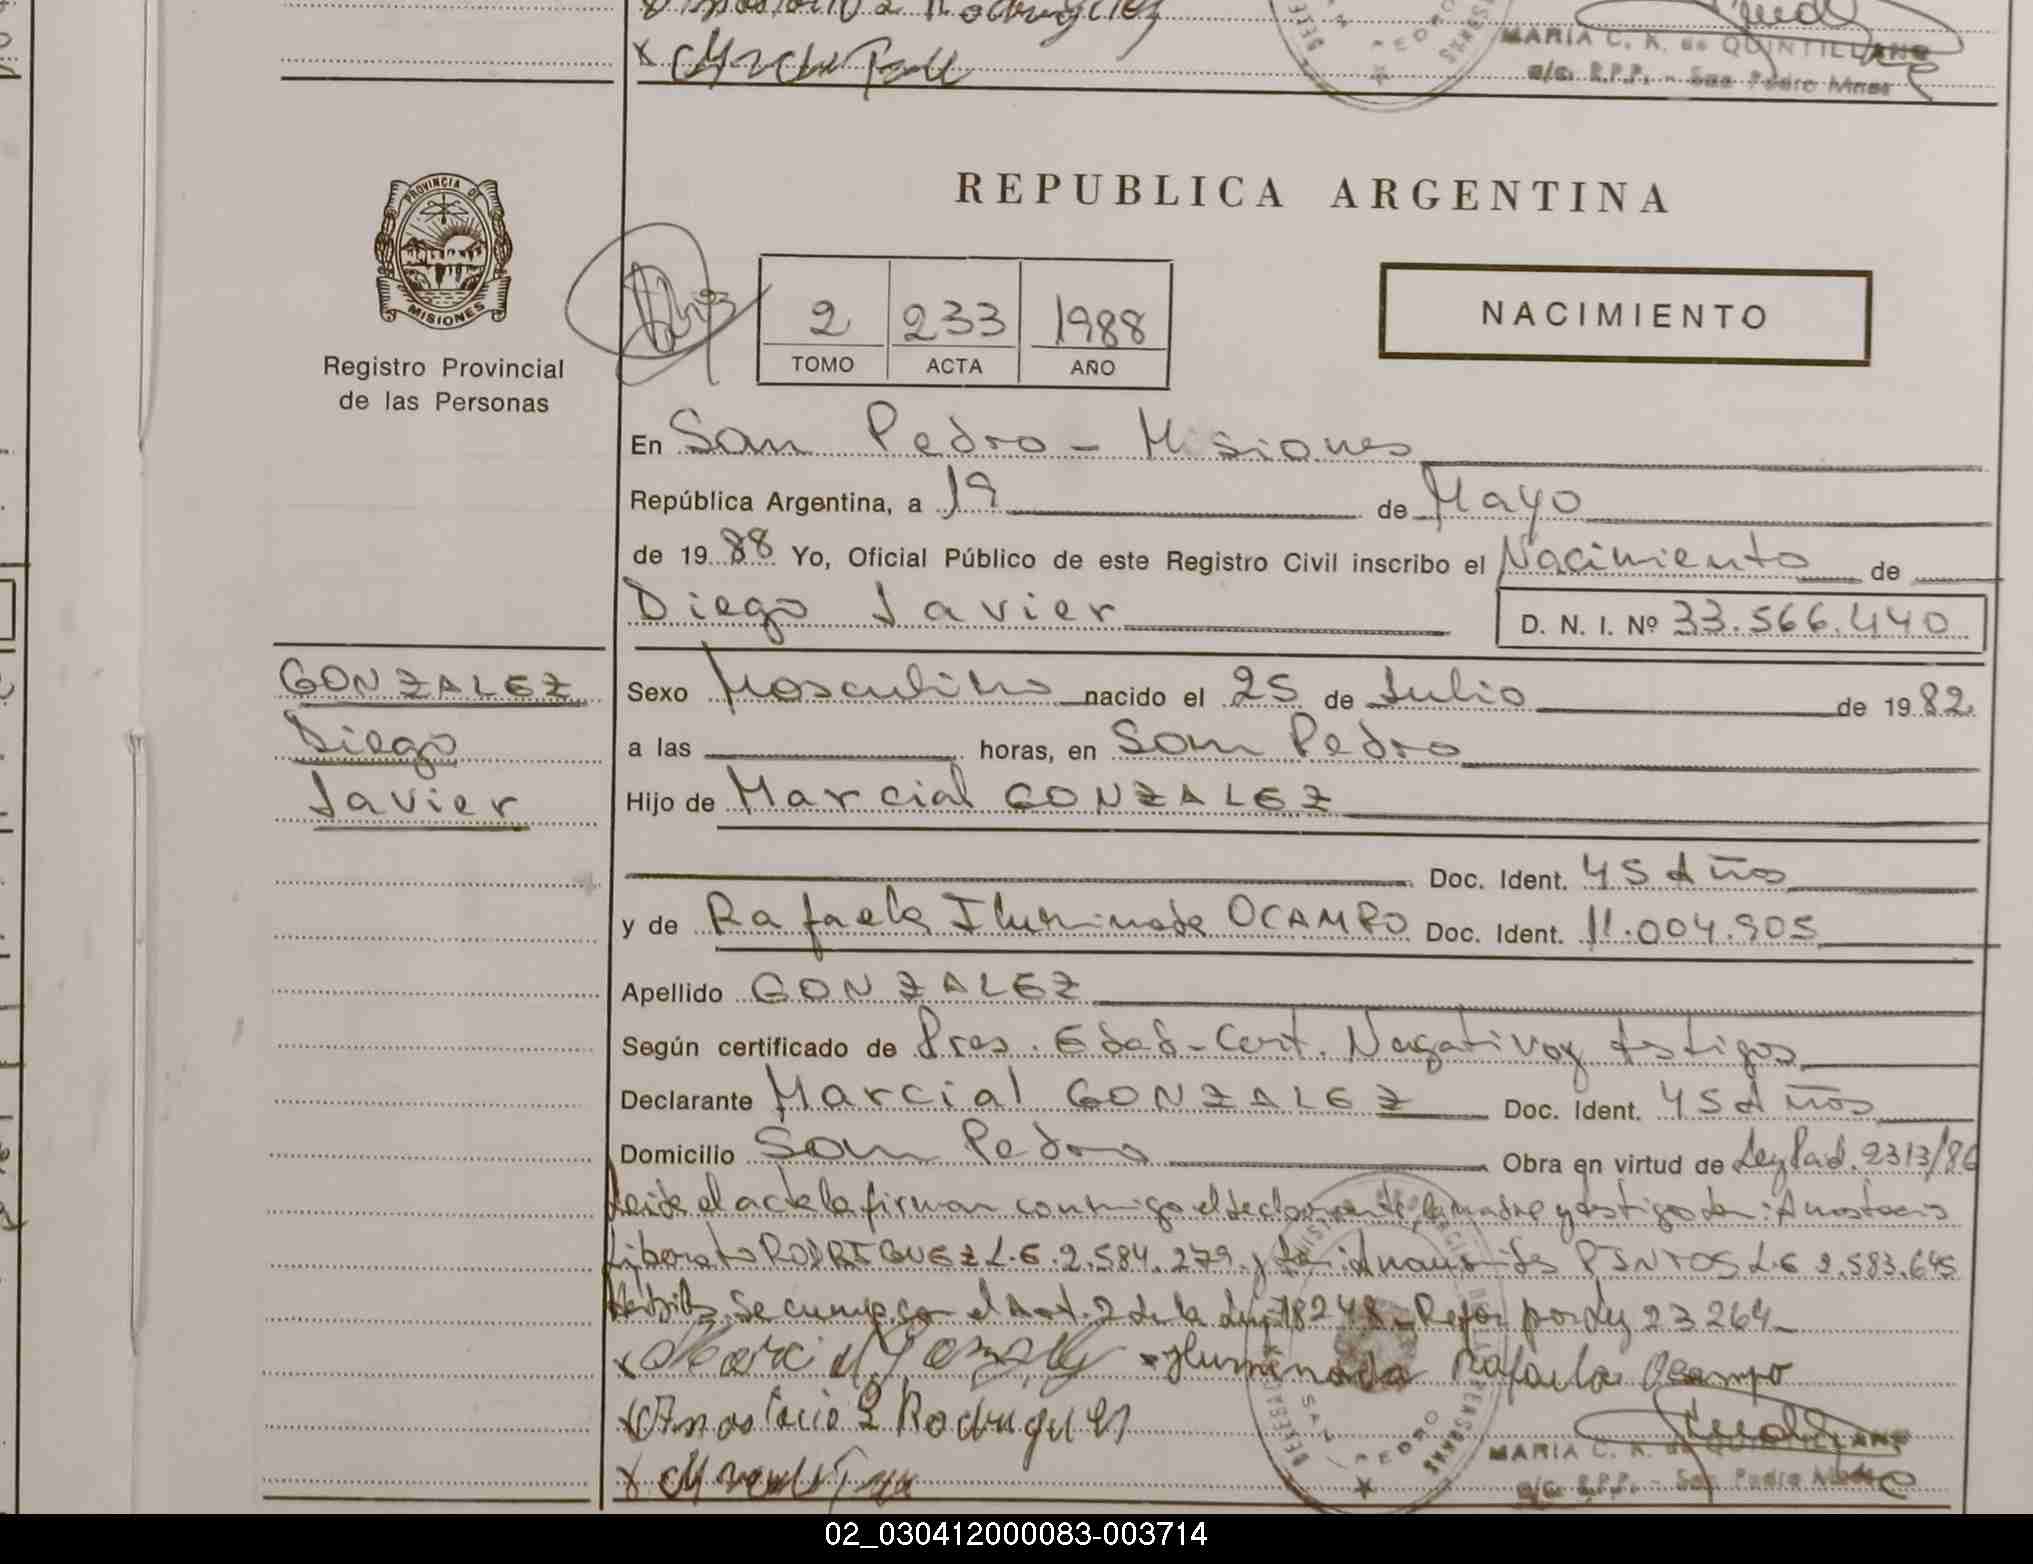 MARIA C. K. de QUINTILLANO
a/c. R.P.P. - San Pedro Mnes
PROVINCIA DE
MISIONES
Registro Provincial
de las Personas
REPUBLICA ARGENTINA
2 233 1988
TOMO ACTA AÑO
NACIMIENTO
En San Pedro - Misiones
República Argentina, a 19 de Mayo
de 1988 Yo, Oficial Público de este Registro Civil inscribo el Nacimiento de
Diego Javier D. N. I. Nº 33.566.440
GONZALEZ
Diego
Javier
Sexo Masculino nacido el 25 de Julio de 1982.
a las horas, en San Pedro
Hijo de Marcial GONZALEZ
Doc. Ident. 45 Años
y de Rafaela Iluminada OCAMPO Doc. Ident. 11.004.905
Apellido GONZALEZ
Según certificado de Pres. Edad - Cert. Negativo y testigos
Declarante Marcial GONZALEZ Doc. Ident. 45 Años
Domicilio San Pedro Obra en virtud de Ley Pad. 2313/86
Leída el acta la firman conmigo el declarante, la madre y testigos Don: Anastacio
Liborato RODRIGUEZ L.E. 2.584.279. y PINTOS L.E 2.583.645
Se cumple con el Art. 2 de la Ley 18248 - Refor por Ley 23264 -
x Marcial Gonzalez x Iluminada Rafaela Ocampo
x Anastacio L Rodriguez
MARIA C. K. de QUINTILLANO
a/c. R.P.P. - San Pedro Mnes
02_030412000083-003714